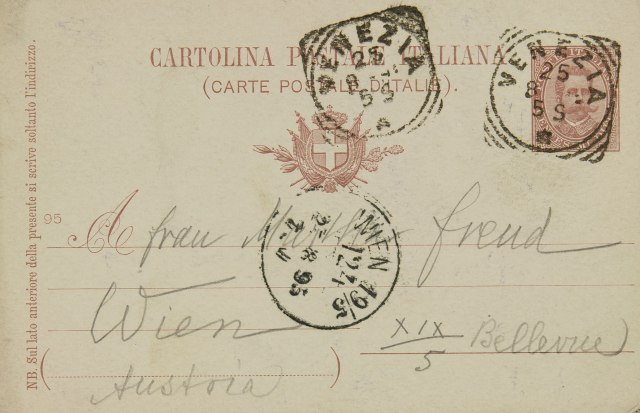 CARTOLINA POSTALE ITALIANA
(CARTE POSTALE D'ITALIE)
VENEZIA
25
8-
5S
VENEZIA
25
8-
5S
NB. Sul lato anteriore della presente si scrive soltanto l'indirizzo.
95
A frau Martha Freud
WIEN 19/5
95
Wien
XIX/5 Bellevue
Austria